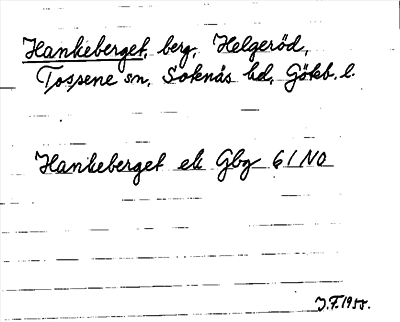 Hankeberget, berg, Helgeröd,
Tossene sn, Sotenäs hd, Götb. l.
Hankeberget ek Gbg 61 NO
J.F. 1955.